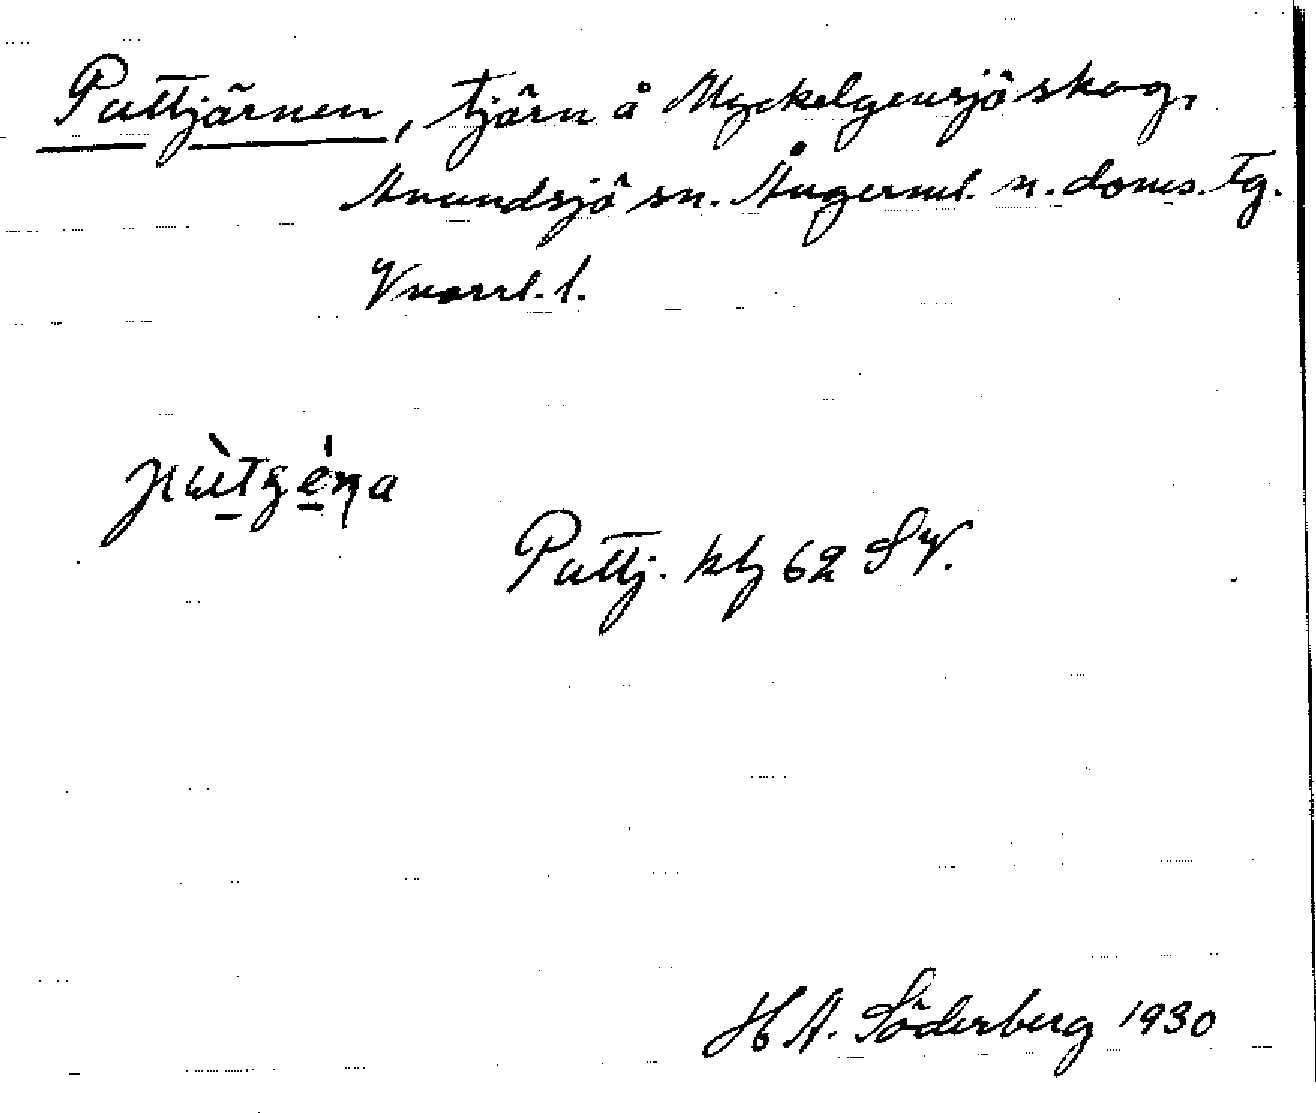 Puttjärnen, tjärn å Myckelgensjö skog,
Anundsjö sn. Ångerml. n. doms. Tg.
Vnorrl. l.
Puttj. kbl 62 SV.
H A. Söderberg 1930